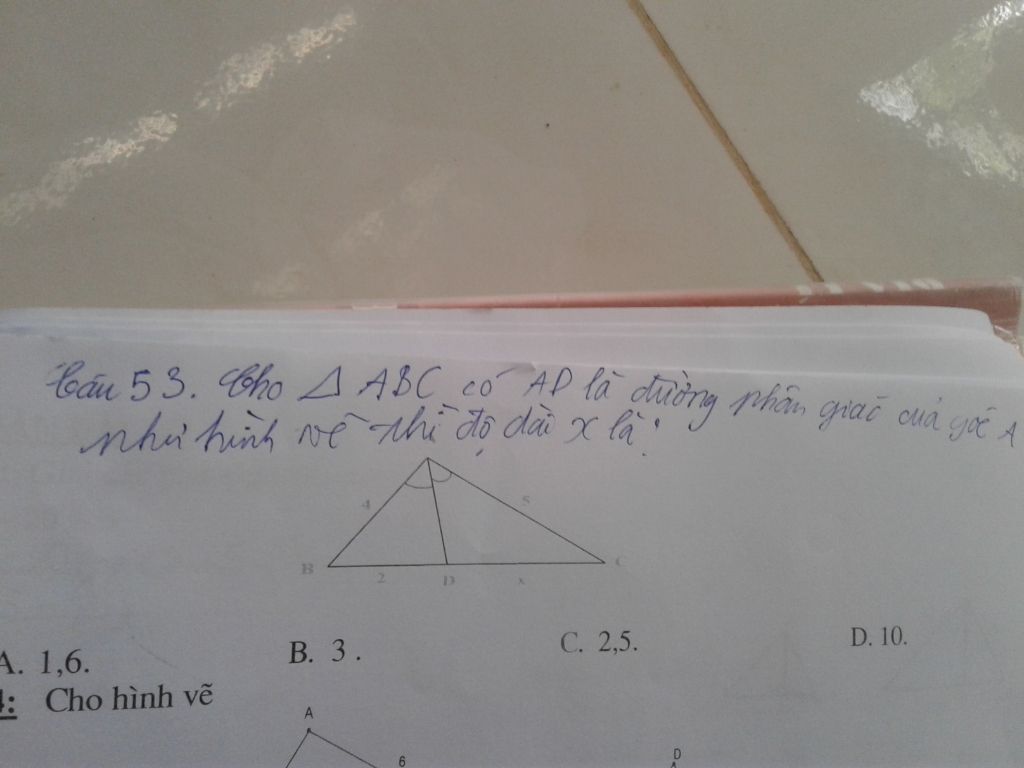 Câu 53. Cho △ ABC có AD là đường phân giác của góc A
như hình vẽ thì độ dài x là:
4
5
B
2
D
x
C
A. 1,6.
B. 3.
C. 2,5.
D. 10.
4: Cho hình vẽ
A
6
D